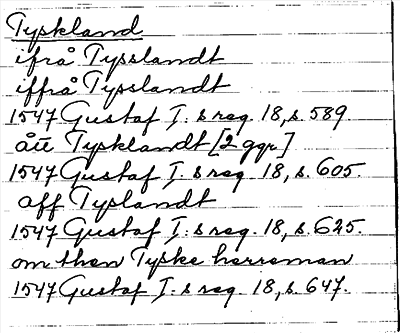 Tyskland
ifrå Tysslandt
iffrå Tysslandt
1547 Gustaf I:s reg. 18, s. 589.
ått Tysklandt [2 ggr]
1547 Gustaf I:s reg. 18, s. 605.
aff Tyslandt
1547 Gustaf I:s reg. 18, s. 625.
om then Tyske herreman
1547 Gustaf I:s reg. 18, s. 647.